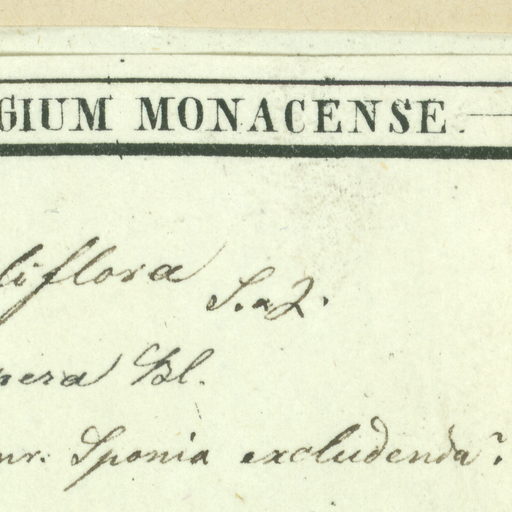 GIUM MONACENSE.
liflora S. & Z.
nera Bl.
nr. Sponia excludenda?